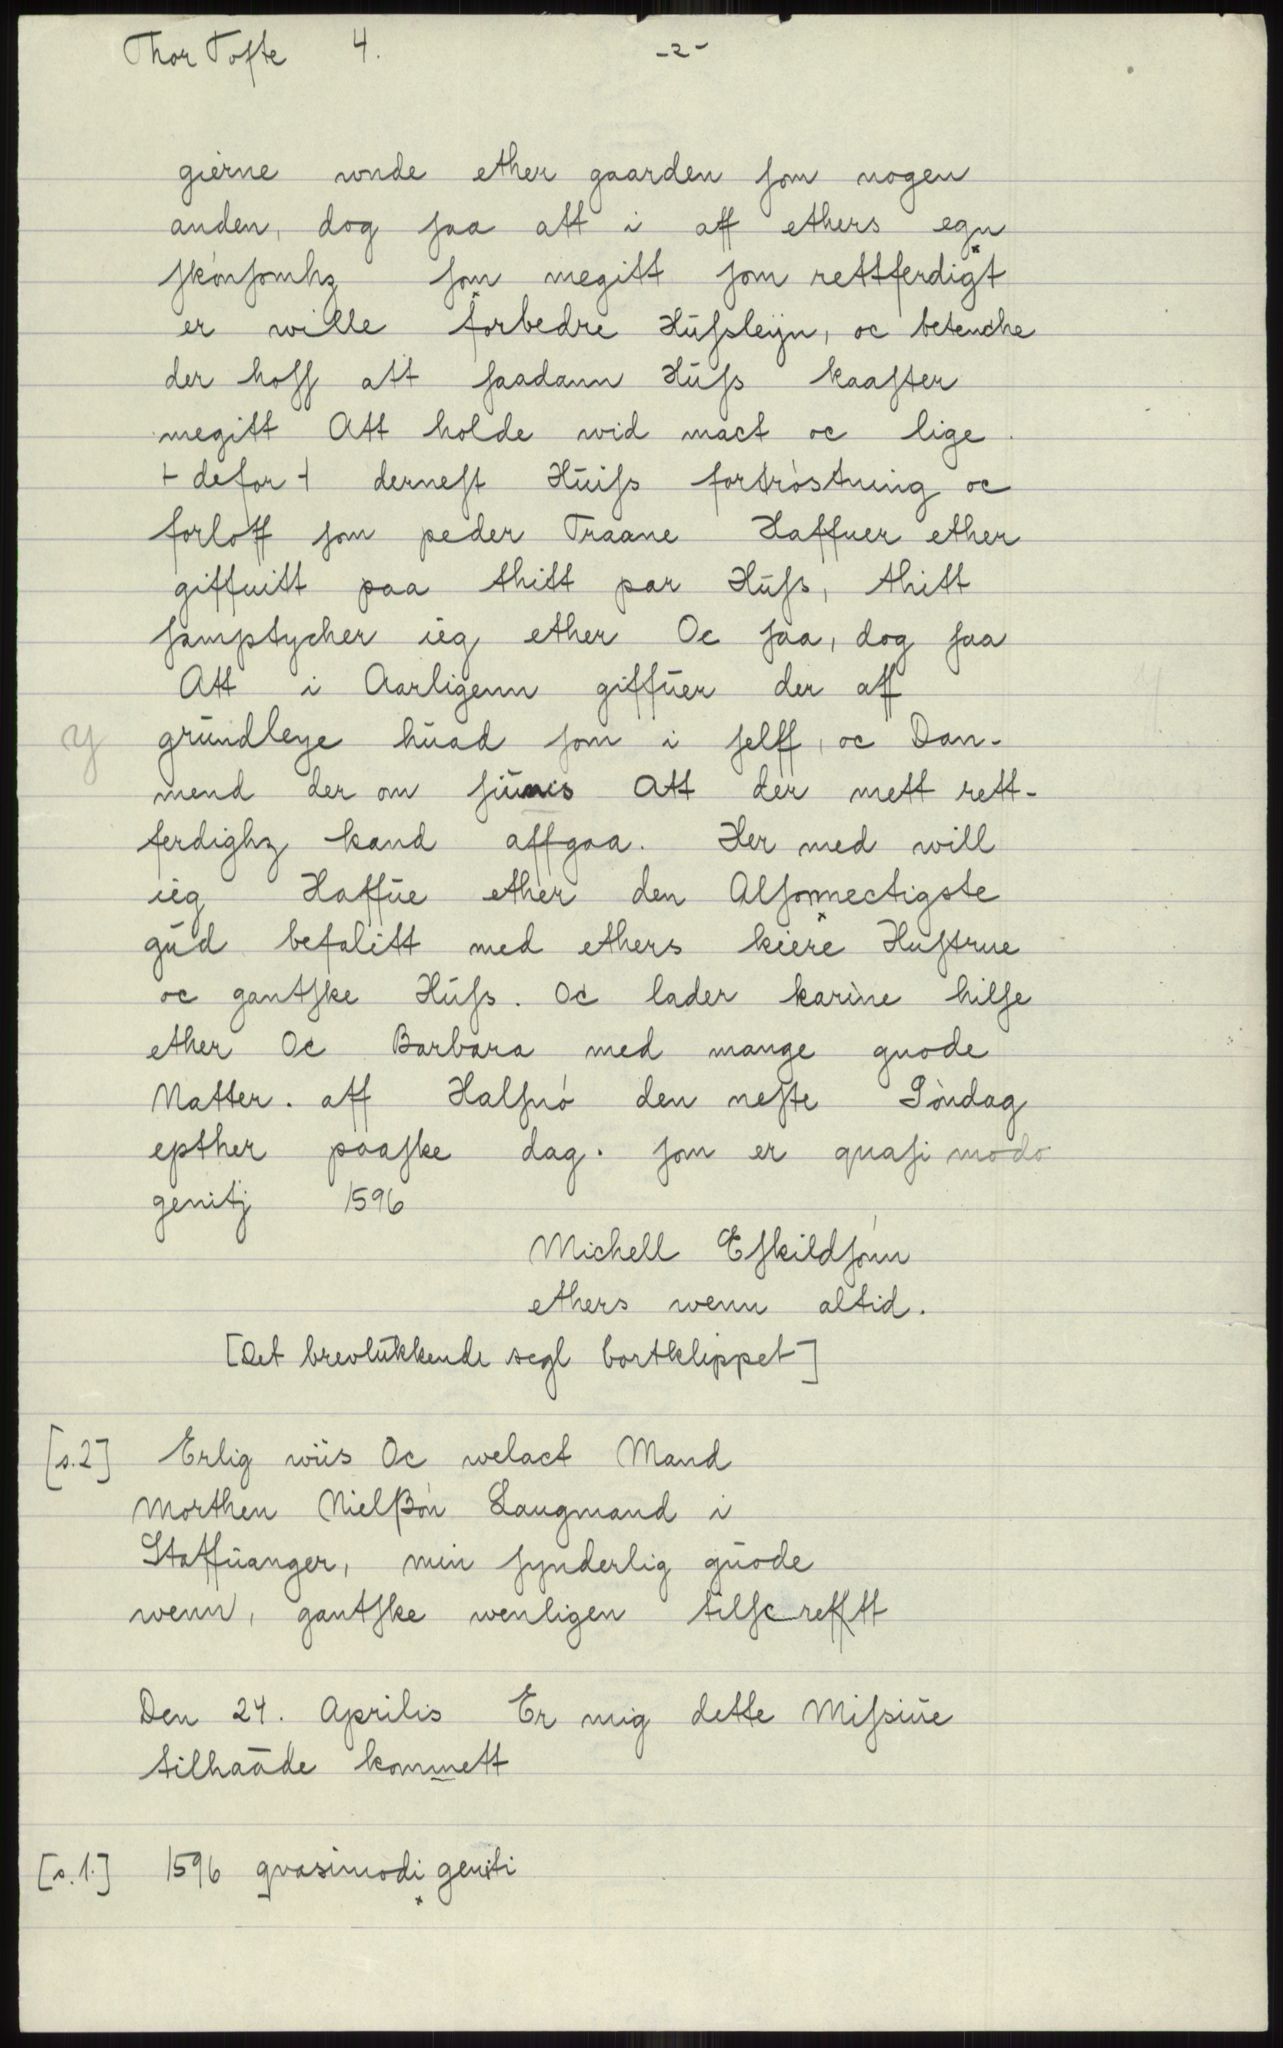 Thor Tofte 4. -2-
gierne wnde ether gaarden som nogen
anden, dog saa att i aff ethers egn
skónsomhz som megitt som rettferdigt
er wille forbedre Húsleijn, oc betenche
der hoss att saadann Húss kaaster
megitt Att holde wid mact oc lige
⊢ defor ⊣ dernest Húiss fortróstning oc
forloff som peder Traane Haffuer ether
giffuitt paa thitt par Húss, thitt
samptycher ieg ether Oc saa, dog saa
Att i Aarligenn giffúer der aff
grúndleye húad som i selff, oc Dan-
mend der om súnis Att der mett rett-
ferdighz kand affgaa. Her med will
ieg Haffúe ether den Alsomectigste
gúd befalitt med ethers kiere Hustrue
oc gantske Húss. Oc lader karine hilse
ether Oc Barbara med mange guode
Natter. aff Halsnó den neste Sóndag
epther paaske dag. som er quasi modo
genitj 1596
Michell Eskildsónn
ethers wenn altid.
[Det brevlukkende segl bortklippet]
[s.2] Erlig wiis Oc welact Mand
Morthen Nielßón Laugmand i
Staffúanger, min synderlig gúode
wenn, gantske wenligen tilscrefftt
Den 24. Aprilis Er mig dette Missiúe
tilhaade kommett
[s.1.] 1596 qvasimodi geniti